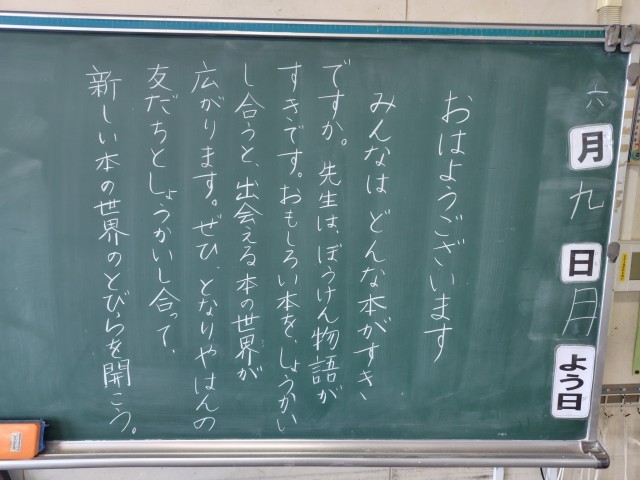 六月九日月よう日
おはようございます
みんなは どんな本がすき、
ですか。先生は、ぼうけん物語が
すきです。おもしろい本を、しょうかい
し合うと、出会える本の世界が
広がります。ぜひ、となりやはんの
友だちとしょうかいし合って、
新しい本の世界のとびらを開こう。